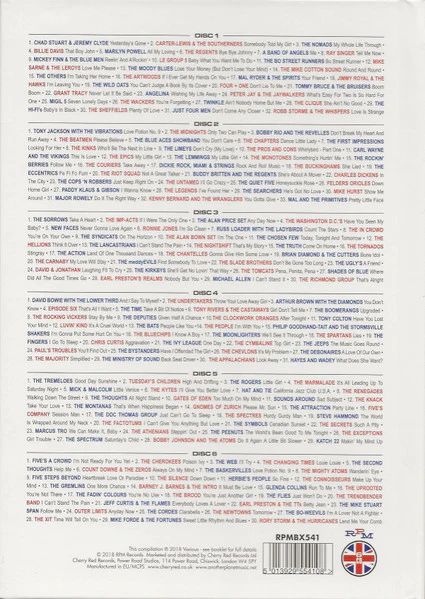 DISC 1
1. CHAD STUART & JEREMY CLYDE Yesterday's Gone • 2. CARTER-LEWIS & THE SOUTHERNERS Somebody Told My Girl • 3. THE NOMADS My Whole Life Through
• 4. BILLIE DAVIS That Boy John • 5. MARILYN POWELL All My Loving • 6. THE REGENTS Bye Bye Johnny • 7. A BAND OF ANGELS Me • 8. RAY SINGER Tell Me Now
• 9. MICKEY FINN & THE BLUE MEN Reelin' And A'Rockin' • 10. LE GROUP 5 Baby What You Want Me To Do • 11. THE BO STREET RUNNERS Bo Street Runner • 12. MIKE
SARNE & THE LEROYS Love Me Please • 13. THE MOODY BLUES Lose Your Money (But Don't Lose Your Mind) • 14. THE MIKE COTTON SOUND Round And Round
• 15. THE OTHERS I'm Taking Her Home • 16. THE ARTWOODS If I Ever Get My Hands On You • 17. MAL RYDER & THE SPIRITS Your Friend • 18. JIMMY ROYAL & THE
HAWKS I'm Leaving You • 19. THE WILD OATS You Can't Judge A Book By Its Cover • 20. FOUR + ONE Don't Lie To Me • 21. TOMMY BRUCE & THE BRUISERS Boom
Boom • 22. GRANT TRACY Never Let It Be Said • 23. ANGELINA Wishing My Life Away • 24. PETER JAY & THE JAYWALKERS What's Easy For Two Is So Hard For
One • 25. MIGIL 5 Seven Lonely Days • 26. THE WACKERS You're Forgetting • 27. TWINKLE Ain't Nobody Home But Me • 28. THE CLIQUE She Ain't No Good • 29. THE
HI-FI's Baby's In Black • 30. THE SHEFFIELDS Plenty Of Love • 31. JUST FOUR MEN Don't Come Any Closer • 32. ROBB STORME & THE WHISPERS Love Is Strange
DISC 2
1. TONY JACKSON WITH THE VIBRATIONS Love Potion No. 9 • 2. THE MIDNIGHTS Only Two Can Play • 3. BOBBY RIO AND THE REVELLES Don't Break My Heart And
Run Away • 4. THE BEATMEN Please Believe • 5. THE BLUE ACES Shoutload You Don't Care • 6. THE CHAPTERS Dance Little Lady • 7. THE FIRST IMPRESSIONS
Looking For Her • 8. THE KINKS Who'll Be The Next In Line • 9. THE LIMEYS Don't Cry (My Love) • 10. THE PROS AND CONS Whirlybird - Part One • 11. CARL WAYNE
AND THE VIKINGS This Is Love • 12. THE EPICS My Little Girl • 13. THE LEMMINGS My Little Girl • 14. THE MONOTONES Something's Hurtin' Me • 15. THE ROCKIN'
BERRIES Follow Me • 16. THE COURIERS Take Away • 17. DICKIE ROCK, MIAMI & STRINGS Rock And Roll Music • 18. THE BUCKINGHAMS She Lied • 19. THE
ECCENTRICS Fe Fi Fo Fum • 20. THE RIOT SQUAD Not A Great Talker • 21. BUDDY BRITTEN AND THE REGENTS She's About A Mover • 22. CHARLES DICKENS In
The City • 23. THE COPS 'N ROBBERS Just Keep Right On • 24. THE UNTAMED I'll Go Crazy • 25. THE QUIET FIVE Honeysuckle Rose • 26. FELDERS ORIOLES Down
Home Girl • 27. PADDY KLAUS & GIBSON I Wanna Know • 28. THE LEGENDS I've Found Her • 29. THE SEARCHERS He's Got No Love • 30. MIKE HURST Show Me
Around • 31. MAJOR ROWELY Do It The Right Way • 32. KENNY BERNARD AND THE WRANGLERS You Gotta Give • 33. MAL AND THE PRIMITIVES Pretty Little Face
DISC 3
1. THE SORROWS Take A Heart • 2. THE IMP-ACTS If I Were The Only One • 3. THE ALAN PRICE SET Any Day Now • 4. THE WASHINGTON D.C.'S Have You Seen My
Baby? • 5. NEW FACES Never Gonna Love Again • 6. RONNIE JONES I'm So Clean • 7. RUSS LOADER WITH THE LADYBIRDS Count The Stars • 8. THE IN CROWD
You're On Your Own • 9. THE SYNDICATS On The Horizon • 10. THE ALAN BOWN SET I'm The One • 11. THE CHOSEN FEW Today, Tonight And Tomorrow • 12. THE
HELLIONS Think It Over • 13. THE LANCASTRIANS I Can't Stand The Pain • 14. THE NIGHTSHIFT That's My Story • 15. THE TRUTH Come On Home • 16. THE TORNADOS
Stingray • 17. THE ACTION Land Of One Thousand Dances • 18. THE CHANTELLES Gonna Give Him Some Love • 19. BRIAN DIAMOND & THE CUTTERS Bone Idol •
20. THE CARNABY My Love Will Stay • 21. The meddyEVILS Find Somebody To Love • 22. THE SLADE BROTHERS Don't Be Gone Too Long • 23. THE UGLY'S A Friend
• 24. DAVID & JONATHAN Laughing Fit To Cry • 25. THE KIRKBYS She'll Get No Lovin' That Way • 26. THE TOMCATS Pena, Penita, Pena • 27. SHADES OF BLUE Where
Did All The Good Times Go • 28. EARL PRESTON'S REALMS Nobody But You • 29. MICHAEL ALLEN I Can't Stand It • 30. THE RICHMOND GROUP That's Alright
DISC 4
1. DAVID BOWIE WITH THE LOWER THIRD And I Say To Myself • 2. THE UNDERTAKERS Throw Your Love Away Girl • 3. ARTHUR BROWN WITH THE DIAMONDS You Don't
Know • 4. EPISODE SIX That's All I Want • 5. THE TIME Take A Bit Of Notice • 6. TONY RIVERS & THE CASTAWAYS Girl Don't Tell Me • 7. THE BOOMERANGS Upgraded •
8. THE ROCKING VICKERS Stay By Me • 9. THE DEPUTIES Given Half A Chance • 10. THE CLOCKWORK ORANGES After Tonight • 11. TONY COLTON Have You Lost
Your Mind • 12. LUVIN' KIND It's A Great World • 13. THE BATS People Like You • 14. THE PEOPLE I'm With You • 15. PHILIP GOODHAND-TAIT AND THE STORMSVILLE
SHAKERS I'm Gonna Put Some Hurt On You • 16. THE BLUECHIPS I Know A Boy • 17. THE MOONLIGHTERS She'll See It Through • 18. THE SPARTANS Lies • 19. THE
FINGERS I Go To Sleep • 20. CHRIS CURTIS Aggravation • 21. THE IVY LEAGUE One Day • 22. THE CYMBALINE Top Girl • 23. THE JEEPS The Music Goes Round •
24. PAUL'S TROUBLES You'll Find Out • 25. THE BYSTANDERS Have I Offended The Girl • 26. THE CHEVLONS It's My Problem • 27. THE DEBONAIRES A Love Of Our Own •
28. THE MAJORITY Simplified • 29. THE MINISTRY OF SOUND Back Seat Driver • 30. THE APPALACHIANS Look Away • 31. HAYES AND WADEY What Does She Want?
DISC 5
1. THE TREMELOES Good Day Sunshine • 2. TUESDAY'S CHILDREN High And Drifting • 3. THE ROGERS Little Girl • 4. THE MARMALADE It's All Leading Up To
Saturday Night • 5. MICK & MALCOLM Little Venice • 6. THE KYTES I'll Give You Better Love • 7. HAT AND TIE California Jazz Club U.S.A. • 8. THE RENEGADES
Walking Down The Street • 9. THE THOUGHTS All Night Stand • 10. GATES OF EDEN Too Much On My Mind • 11. SOUNDS AROUND Sad Subject • 12. THE KNACK
Take Your Love • 13. THE MONTANAS That's When Happiness Began • 14. GNOMES OF ZURICH Please Mr. Sun • 15. THE ATTRACTION Party Line • 16. FIVE'S
COMPANY Session Man • 17. THE DOC THOMAS GROUP Just Can't Go To Sleep • 18. THE SPECTRES Hurdy Gurdy Man • 19. STEVE HAMMOND The World
Is Wrapped Around My Neck • 20. THE FACTOTUMS I Can't Give You Anything But Love • 21. THE SYMBOLS Canadian Sunset • 22. THE SECRETS Such A Pity •
23. MARCUS TRO We Can Make It, Baby • 24. THE ATHENIANS Steppin' Out • 25. THE PEENUTS The World's Been Good To Me Tonight • 26. THE EXCEPTIONS
Girl Trouble • 27. THE SPECTRUM Saturday's Child • 28. BOBBY JOHNSON AND THE ATOMS Do It Again A Little Bit Slower • 29. KATCH 22 Makin' My Mind Up
DISC 6
1. FIVE'S A CROWD I'm Not Ready For You Yet • 2. THE CHEROKEES Poison Ivy • 3. THE WEB I'll Try • 4. THE CHANGING TIMES Louie Louie • 5. THE SECOND
THOUGHTS Help Me • 6. COUNT DOWNE & THE ZEROS Always On My Mind • 7. THE BASKERVILLES Love Potion No. 9 • 8. THE MIGHTY ATOMS Wanderin' Eye •
9. FIVE STEPS BEYOND Heartbreak Love On Paradise • 10. THE SILENCE Down Down • 11. HERBIE'S PEOPLE So Fine • 12. THE CONNOISEURS Make Up
Your Mind • 13. THE GREMLINS One More Chance • 14. BARNEY J. BARNES & THE INTRO It Must Be Love • 15. GLENDA COLLINS Run To Me • 16. THE UPROOTED
You're Not There • 17. THE FADIN' COLOURS You're No Use • 18. THE BROOD You're Just Another Girl • 19. THE FLIES Just Won't Do • 20. THE TRENDBENDER
BAND I Can't Stand The Pain • 21. JEFF CURTIS & THE FLAMES Everybody Loves A Lover • 22. EARL PRESTON & THE TTs Baby Jean • 23. THE MIKE STUART
SPAN Follow Me • 24. OUTER LIMITS Anyday Now • 25. THE CORDES Clarabella • 26. THE NEWTOWNS Tomorrow • 27. THE BO-WEEVILS I'm A Lover Not A Fighter •
28. THE XIT Time Will Tell On You • 29. MIKE FORDE & THE FORTUNES Sweet Little Rhythm And Blues • 30. RORY STORM & THE HURRICANES Lend Me Your Comb
This compilation ℗ 2018 Various - see booklet for full details
© 2018 RPM Records. Marketed and distributed by
Cherry Red Records, Power Road Studios, 114 Power Road, Chiswick, London W4 5PY
Manufactured in EU/MCPS www.cherryred.co.uk
RPMBX541
RPM
5 013929 554108